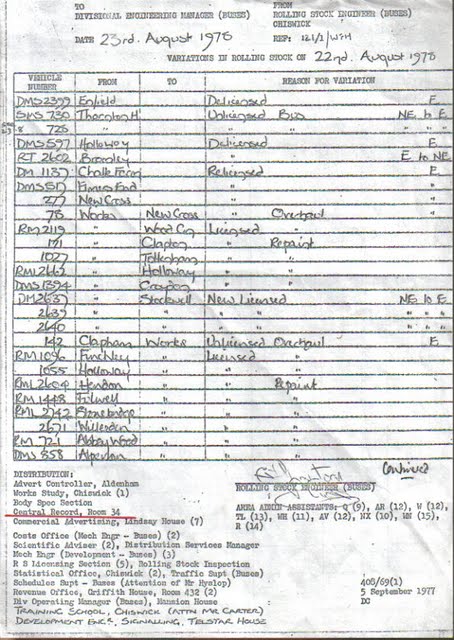 TO FROM
DIVISIONAL ENGINEERING MANAGER (BUSES) ROLLING STOCK ENGINEER (BUSES)
CHISWICK
DATE 23rd. August 1978 REF: 121/2/WSH
VARIATIONS IN ROLLING STOCK ON 22nd. August 1978
VEHICLE NUMBER FROM TO REASON FOR VARIATION
DMS 2399 Enfield Delicensed E
SMS 730 Thornton H Unlicensed Bus NE to E
728 " " " " " "
DMS 597 Holloway Delicensed E
RT 2602 Bromley " E to NE
DM 1137 Chalk Farm Relicensed E
DMS 517 Elmers End " "
277 New Cross " "
78 Works New Cross " Overhaul "
RM 2119 " Wood Gn Licensed "
171 " Clapton " Repaint "
1027 " Tottenham " " "
RML 2662 " Holloway " " "
DMS 1394 " Croydon " " "
DM 2637 " Stockwell New Licensed NE to E
2639 " " " " " " "
2640 " " " " " " "
142 Clapham Works Unlicensed Overhaul E
RM 1096 Finchley " Licensed " "
1055 Holloway " " " "
RML 2604 Hendon " " Repaint "
RM 1448 Fulwell " " " "
RML 2742 Stonebridge " " " "
2671 Willesden " " " "
RM 721 Abbey Wood " " " "
DMS 558 Alperton " " " "
Continued
DISTRIBUTION:
Advert Controller, Aldenham
Works Study, Chiswick (1)
Body Spec Section
Central Record, Room 34
Commercial Advertising, Lindsay House (7)
Costs Office (Mech Engr - Buses) (2)
Scientific Adviser (2), Distribution Services Manager
Mech Engr (Development - Buses) (3)
R S Licensing Section (5), Rolling Stock Inspection
Statistical Office, Chiswick (2), Traffic Supt (Buses)
Schedules Supt - Buses (Attention of Mr Hyslop)
Revenue Office, Griffith House, Room 432 (2)
Div Operating Manager (Buses), Mansion House
TRAINING SCHOOL, CHISWICK (ATTN MR CARTER)
DEVELOPMENT ENGR, SIGNALLING, TELSTAR HOUSE
ROLLING STOCK ENGINEER (BUSES)
AREA ADMIN ASSISTANTS: Q (9), AR (12), W (12),
TL (13), WH (11), AV (12), NX (10), WN (15),
R (14)
408/69(1)
5 September 1977
DC